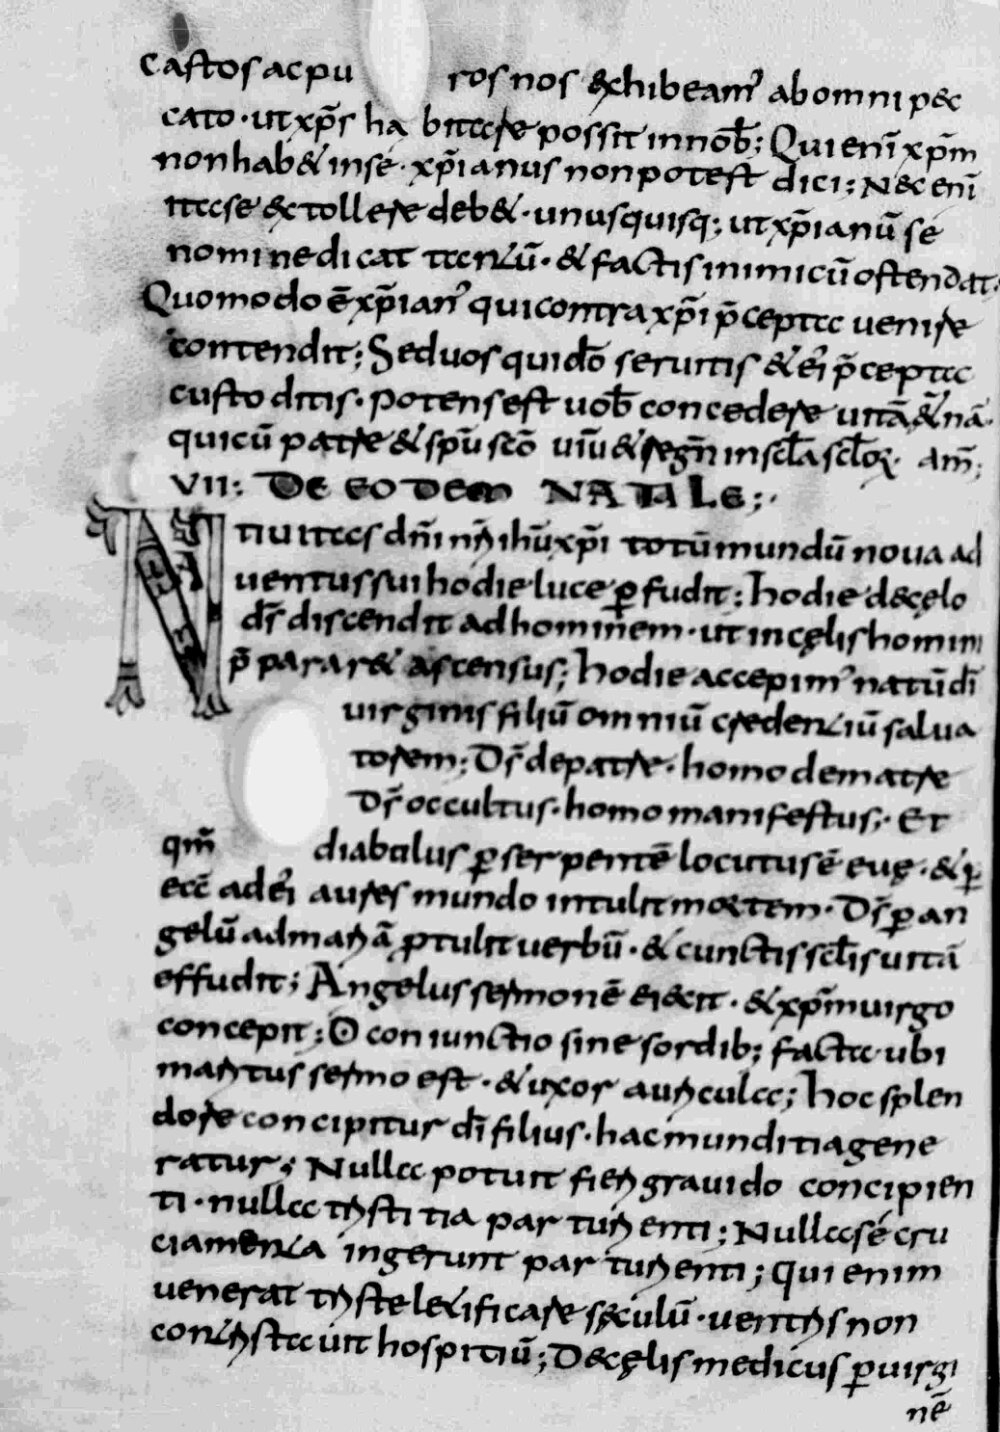 castos ac pu ros nos exhibeam' ab omni pec
cato · ut xp̄s ha bitare possit in nob̄; Qui eni̅ xp̄m
non hab& in se · xp̄ianus non potest dici; Nec eni̅
ita se extollere deb& · unusquisq; ut xp̄ianū se
nomine dicat tantū · & factis inimicū ostendat ·
Quomodo ē xp̄ian' qui contra xp̄i p̄cepta uenire
contendit; Sed uos qui dō seruitis & ei' p̄cepta
custoditis · potens est uob̄ concedere uitā &̄nā ·
qui cū patre & sp̄u scō uiū & regn̄ in scl̄a scl̄oꝝ · am̄;
VII: DE EODEM NATALE;
NATIuitas dn̄i nr̄i ihū xp̄i totū mundū noua ad
uentus sui hodie luce ꝑfudit; hodie de cęlo
dr̄ discendit ad hominem · ut in cęlis homini
p̄parar& ascensus; hodie accepim' natū di̅
uirginis filiū omniū credentiū salua
torem; Dr̄ de patre · homo de matre
Dr̄ occultus · homo manifestus; Et
qm̄ diabulus ꝑ serpentē locutus ē euę · & ꝑ
ecc̄ ad ei' aures mundo intulit mortem · Dr̄ ꝑ an
gelū ad mariā ꝓtulit uerbū · & cunctis scl̄is uitā
effudit; Angelus sermonē eiecit · & xp̄m uirgo
concepit; O coniunctio sine sordib; facta ubi
maritus sermo est · & uxor auricula; hoc splen
dore concipitur di̅ filius · hac munditia gene
ratur; Nulla potuit fieri grauido concipien
ti · nulla tristitia parturienti; Nulla se cru
ciamenta ingerunt parturienti; qui enim
uenerat triste letificare sęculū · uentris non
contristauit hospitiū; De cęlis medicus ꝑ uirgi
nē